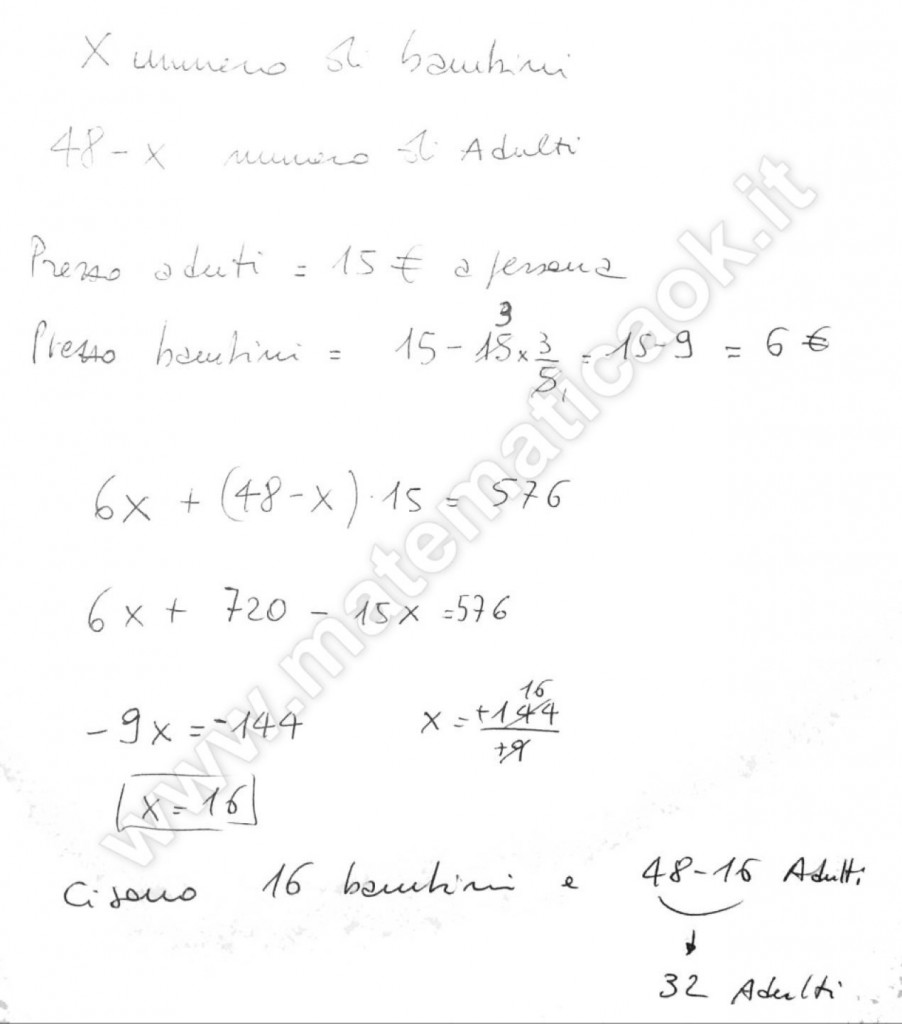 X numero di bambini
48 - x numero di Adulti
Prezzo aduti = 15 € a persona
Prezzo bambini = 15 - 15 3 x 3/5 1 = 15 - 9 = 6 €
6x + (48 - x) · 15 = 576
6x + 720 - 15x = 576
-9x = -144 x = +144 16 / +9
x = 16
Ci sono 16 bambini e 48-16 Adulti
32 Adulti
www.matematicaok.it